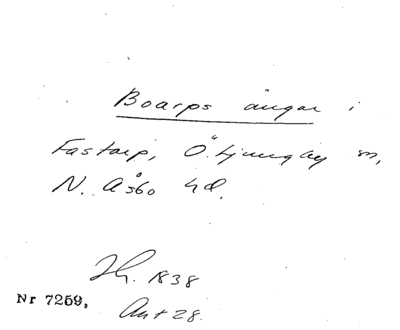 Boarps ängar i
Fastarp, Ö. Ljungby sn,
N. Åsbo hd.
Jh. 1838
Nr 7259.
Akt 28.